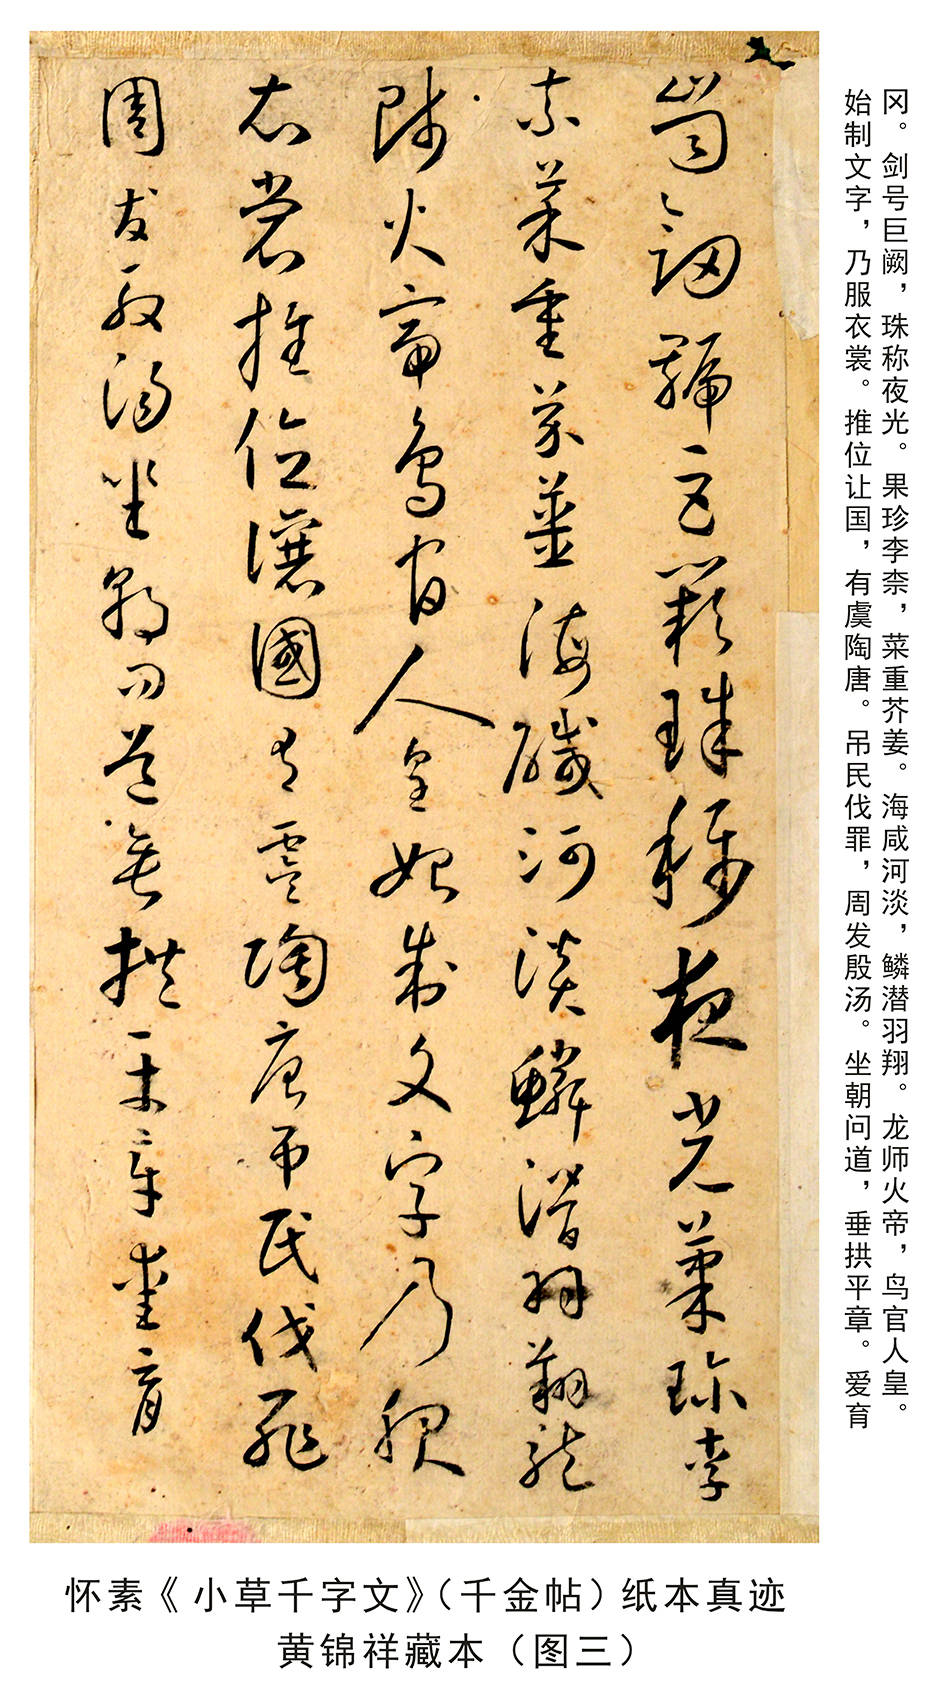 冈。剑号巨阙，珠称夜光。果珍李柰，菜重芥姜。海咸河淡，鳞潜羽翔。龙师火帝，鸟官人皇。
始制文字，乃服衣裳。推位让国，有虞陶唐。吊民伐罪，周发殷汤。坐朝问道，垂拱平章。爱育
崗劍號巨闕珠稱夜光菓珍李
柰菜重芥薑海鹹河淡鱗潛羽翔龍
師火帝鳥官人皇始制文字乃服
衣裳推位讓國有虞陶唐吊民伐罪
周發殷湯坐朝問道垂拱平章愛育
怀素《小草千字文》（千金帖）纸本真迹
黄锦祥藏本（图三）